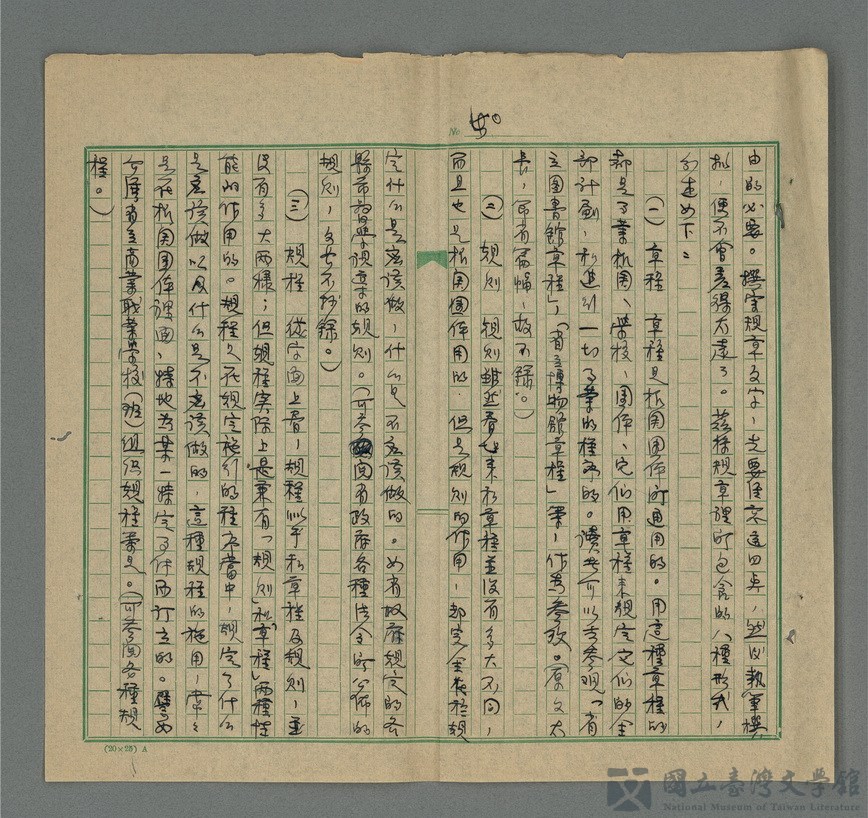 No. 50
由的必要。撰寫規章文字,先要注意這四点,然後執筆撰
擬,便不會差得太遠了。茲將規章裡所包含的八種形式,
分述如下:
(一) 章程 章程是机関団体所通用的。用這種章程的
都是事業机関、学校、団体,它們用章程來規定它們的全
部計劃,和進行一切事業的程序的。讀者可以去參观「省
立圖書館章程」,「省立博物館章程」等,作為參攷。(原文太
長,不省篇幅,故不錄。)
(二) 規則 規則雖然看起來和章程並沒有多大不同,
而且也是机関団体用的,但是規則的作用,却完全在於規
定什么是应該做,什么是不应該做的。如省政府規定的各
縣市督学視导的規則。(可參閱省政府各種法令所公佈的
規則,文長不抄錄。)
(三) 規程 從字面上看,規程似乎和章程及規則,並
沒有多大两樣;但規程实际上是兼有「規則」和「章程」两種性
能的作用的。規程久在規定施行的程序當中,規定了什么
是应該做以及什么是不应該做的,這種規程的施用,常々
是在机関団体裡面,特地為某一特定事件而訂立的。譬如
台灣省立商業職業学校(班)組織規程等是。(可參閱各種規
程。)
(20×25) A
國立臺灣文學館
National Museum of Taiwan Literature